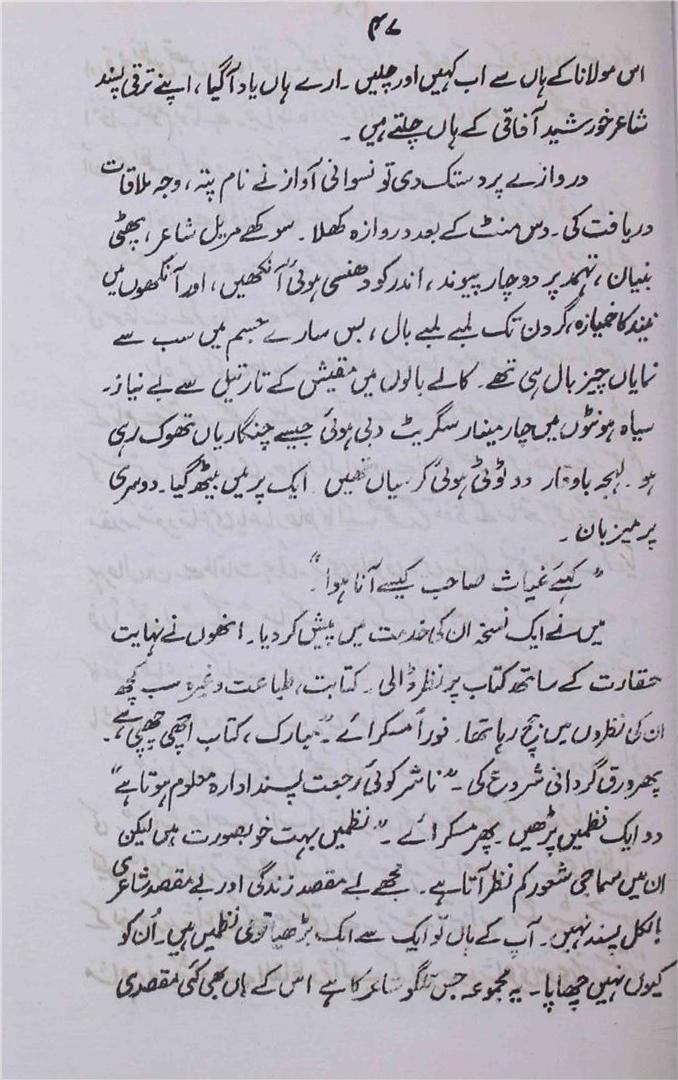 ۴۷
اس مولانا کے ہاں سے اب کہیں اور چلیں ۔ ارے ہاں یاد آگیا ، اپنے ترقی پسند
شاعر خورشید آفاقی کے ہاں چلتے ہیں ۔
دروازے پر دستک دی تو نسوانی آواز نے نام پتہ ، وجہ ملاقات
دریافت کی ۔ دس منٹ کے بعد دروازہ کھلا ۔ سوکھے مریل شاعر ، پھٹی
بنیان ، تہمد پر دو چار پیوند ، اندر کو دھنسی ہوئی آنکھیں ، اور آنکھوں میں
نیند کا خمیازہ ، گردن تک لمبے لمبے بال ، بس سارے جسم میں سب سے
نمایاں چیز بال ہی تھے ۔ کالے بالوں میں مقیش کے تار تیل سے بے نیاز ۔
سیاہ ہونٹوں میں چار مینار سگریٹ دبی ہوئی جیسے چنگاریاں تھوک رہی
ہو ۔ لہجہ باوقار دو ٹوٹی ہوئی کرسیاں تھیں ایک پر میں بیٹھ گیا ۔ دوسری
پر میزبان ۔
” کہئے غیاث صاحب کیسے آنا ہوا “ ۔
میں نے ایک نسخہ ان کی خدمت میں پیش کر دیا ۔ انھوں نے نہایت
حقارت کے ساتھ کتاب پر نظر ڈالی ۔ کتابت ، طباعت وغیرہ سب کچھ
ان کی نظروں میں جچ رہا تھا ۔ فوراً مسکرائے ۔ ” مبارک ، کتاب اچھی چھپی ہے “ ۔
پھر ورق گردانی شروع کی ۔ ” ناشر کوئی رجعت پسند ادارہ معلوم ہوتا ہے “
دو ایک نظمیں پڑھیں ۔ پھر مسکرائے ۔ ” نظمیں بہت خوبصورت ہیں لیکن
ان میں سماجی شعور کم نظر آتا ہے ۔ مجھے بے مقصد زندگی اور بے مقصد شاعری
بالکل پسند نہیں ۔ آپ کے ہاں تو ایک سے ایک بڑھیا قومی نظمیں ہیں ۔ اُن کو
کیوں نہیں چھاپا ۔ یہ مجموعہ جس تلگو شاعر کا ہے اس کے ہاں بھی کئی مقصدی